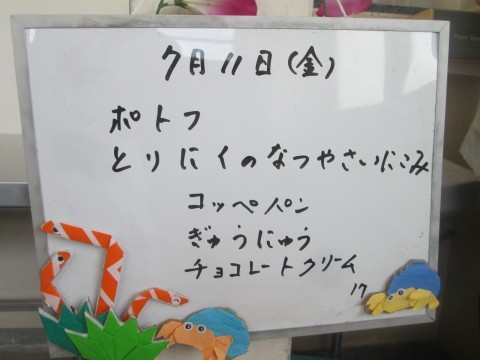 7月11日(金)
ポトフ
とりにくのなつやさいにこみ
コッペパン
ぎゅうにゅう
チョコレートクリーム
17